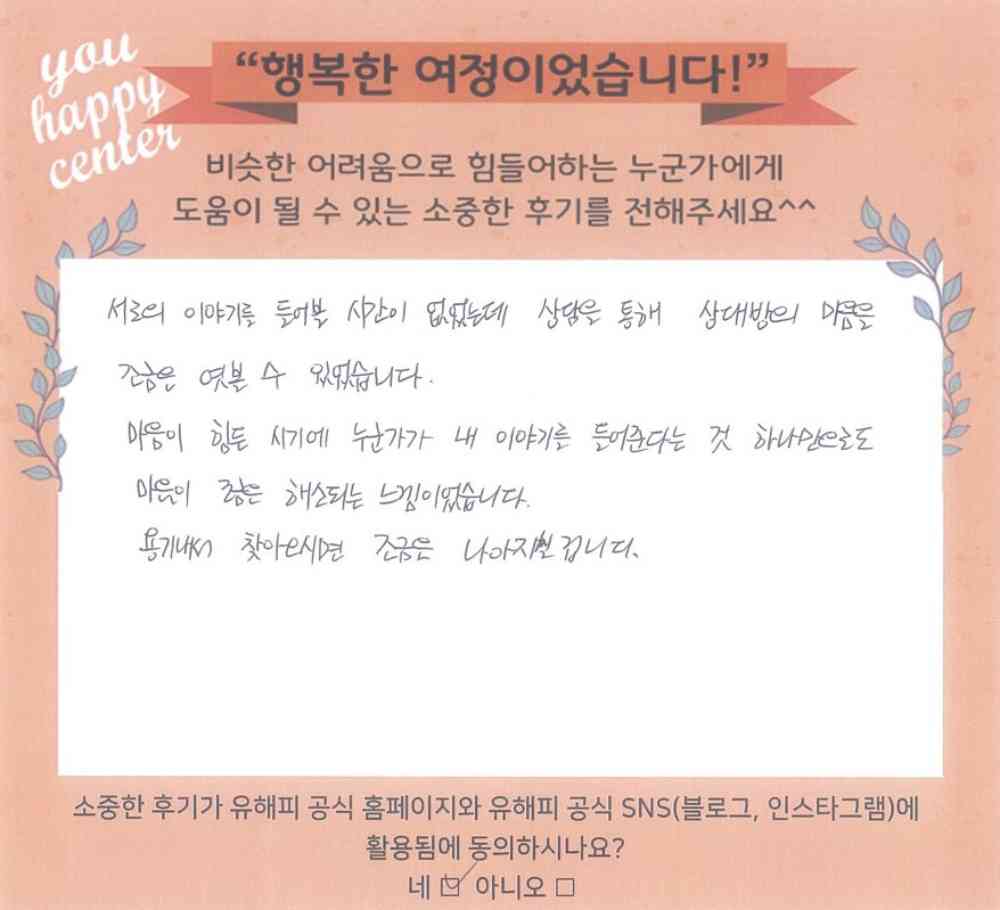 you
happy
center
“행복한 여정이었습니다!”
비슷한 어려움으로 힘들어하는 누군가에게
도움이 될 수 있는 소중한 후기를 전해주세요^^
서로의 이야기를 들어볼 시간이 없었는데 상담을 통해 상대방의 마음을
조금은 엿볼 수 있었습니다.
마음이 힘든 시기에 누군가가 내 이야기를 들어준다는 것 하나만으로도
마음이 조금은 해소되는 느낌이었습니다.
용기내서 찾아오시면 조금은 나아지실 겁니다.
소중한 후기가 유해피 공식 홈페이지와 유해피 공식 SNS(블로그, 인스타그램)에
활용됨에 동의하시나요?
네 ☑ 아니오 ☐